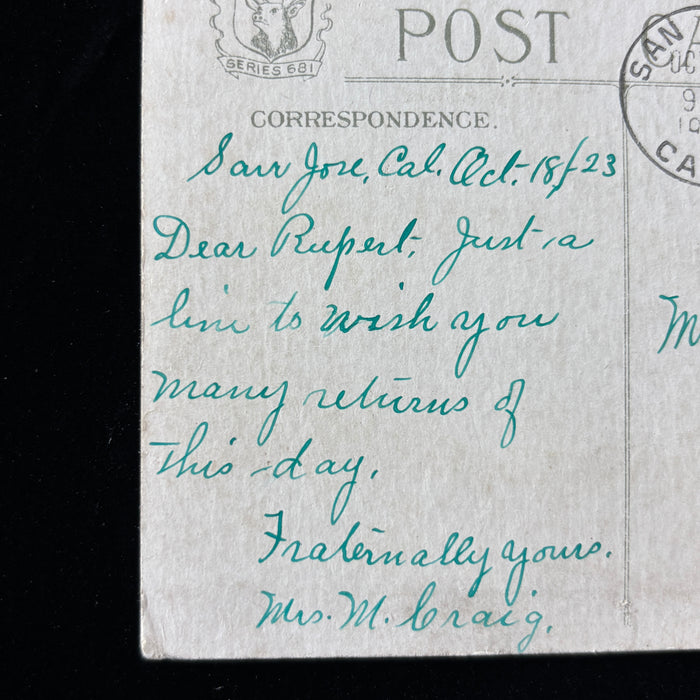 SERIES 681
POST
CORRESPONDENCE.
SAN
OC
9
19
CA
San Jose, Cal. Oct. 18/23
Dear Rupert, Just a
line to wish you
many returns of
this day.
Fraternally yours.
Mrs. M. Craig.
M